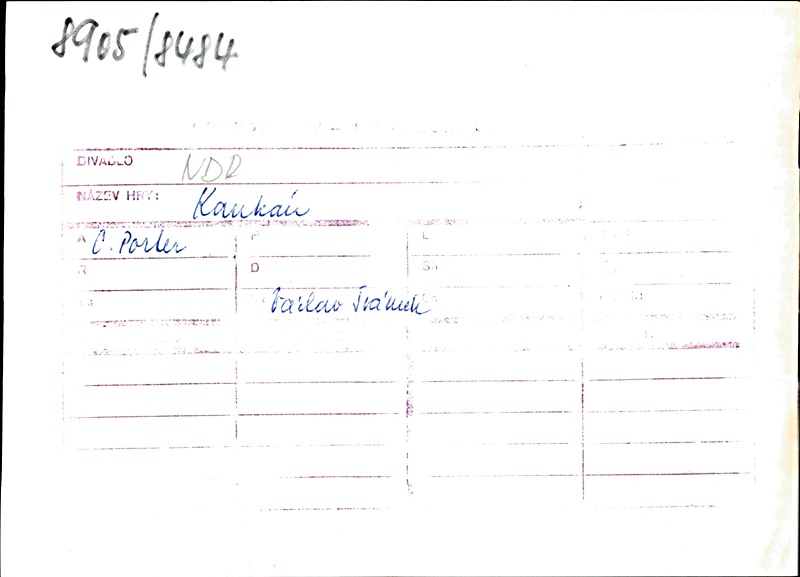 8905/8484
DIVADLO NDR
NÁZEV HRY: Kankán
A C. Porter P L
R D Sh
Václav